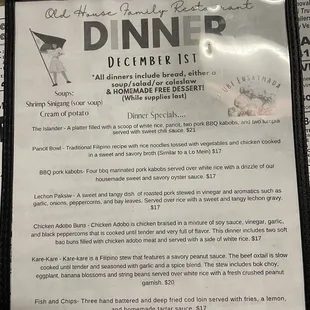 Old House Family Restaurant
DINNER
DECEMBER 1ST
"All dinners include bread, either a
soup/salad/or coleslaw
& HOMEMADE FREE DESSERT!
(While supplies last)
Soups:
Shrimp Snigang (sour soup)
Cream of potato
Dinner Specials....
The Islander - A platter filled with a scoop of white rice, pancit, two pork BBQ kabobs, and two lumpia
served with sweet chili sauce. $21
Pancit Bowl - Traditional Filipino recipe with rice noodles tossed with vegetables and chicken cooked
in a sweet and savory broth (Similar to a Lo Mein) $17
BBQ pork kabobs- Four bbq marinated pork kabobs served over white rice with a drizzle of our
housemade sweet and savory oyster sauce. $17
Lechon Paksiw - A sweet and tangy dish of roasted pork stewed in vinegar and aromatics such as
garlic, onions, peppercorns, and bay leaves. Served over rice with a sweet and tangy lechon gravy.
$17
Chicken Adobo Buns - Chicken Adobo is chicken braised in a mixture of soy sauce, vinegar, garlic,
and black peppercorns that is cooked until tender and very full of flavor. This dinner includes two soft
bao buns filled with chicken adobo meat and served with a side of white rice. $17
Kare-Kare - Kare-kare is a Filipino stew that features a savory peanut sauce. The beef oxtail is slow
cooked until tender and seasoned with garlic and a spice blend. The stew includes bok choy,
eggplant, banana blossoms and string beans served over white rice with a fresh crushed peanut
garnish. $20
Fish and Chips- Three hand battered and deep fried cod loin served with fries, a lemon,
and homemade tartar sauce. $17